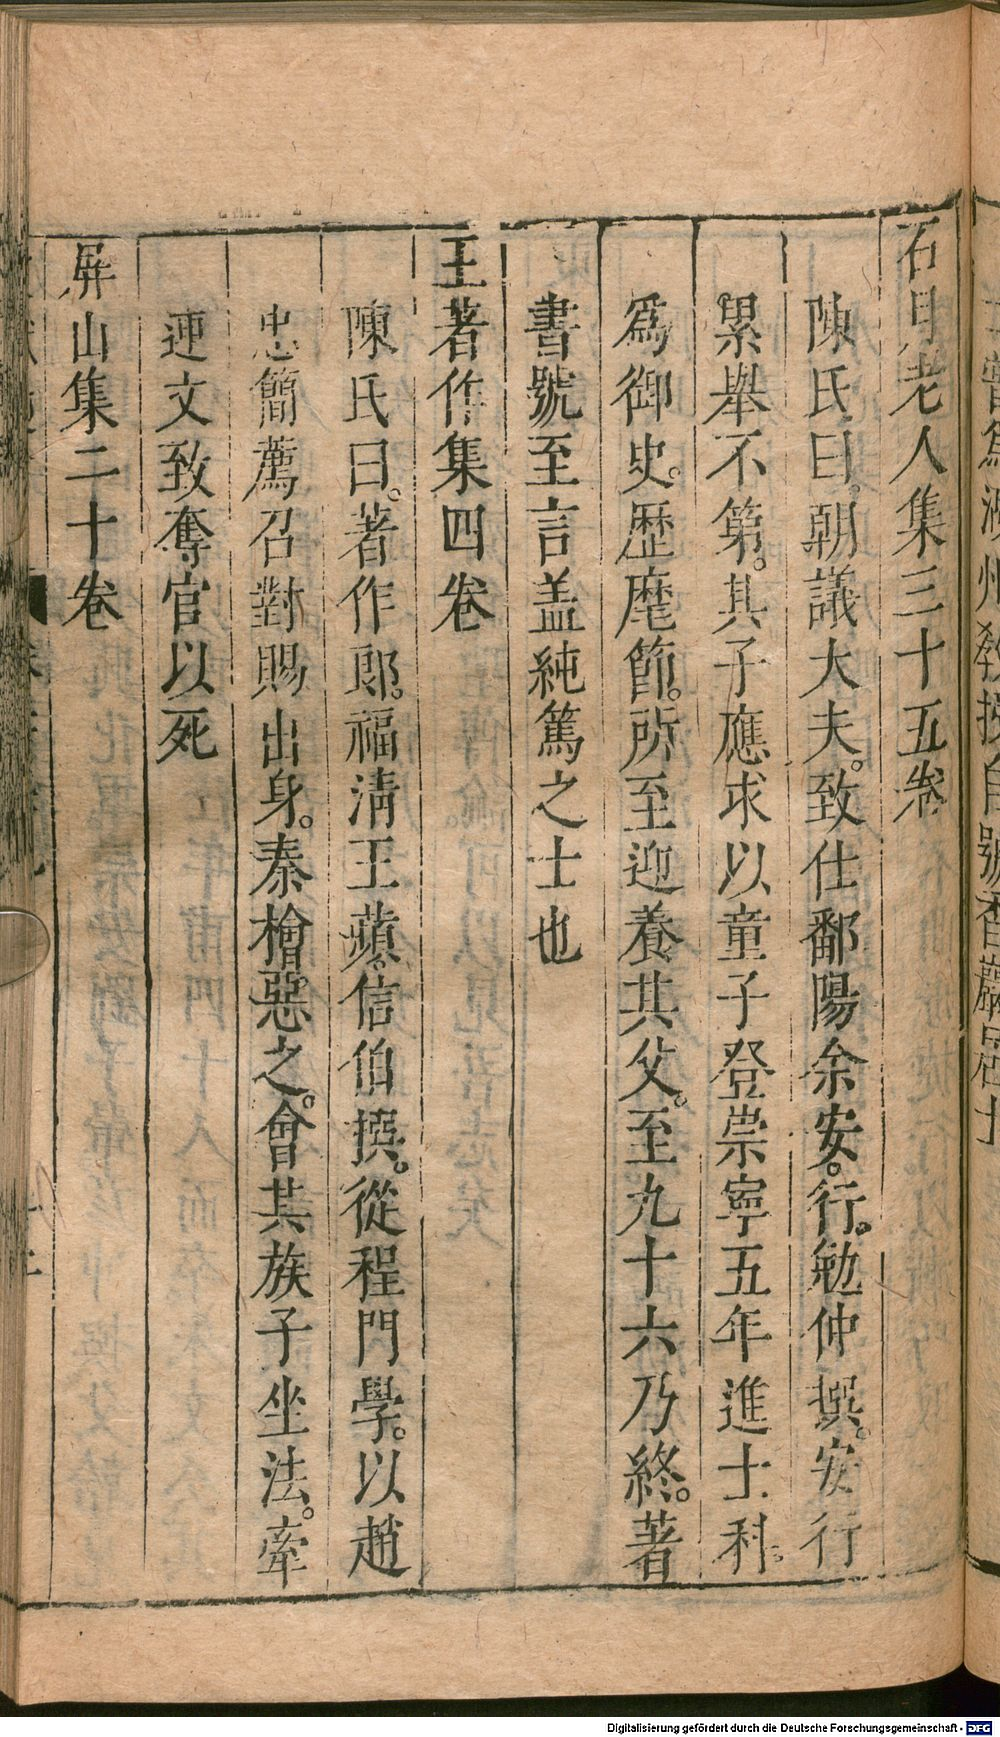 石月老人集三十五卷
陳氏曰。朝議大夫。致仕鄱陽余安。行。勉仲撰。安行
累舉不第。其子應求以童子登崇寧五年進士科。
爲御史。歴麾節。所至迎養其父。至九十六乃終。著
書號至言盖純篤之士也
王著作集四卷
陳氏曰。著作郎。福淸王蘋。信伯撰。從程門學。以趙
忠簡薦召對賜出身。秦檜惡之。會其族子坐法。牽
連文致奪官以死
屏山集二十卷
Digitalisierung gefördert durch die Deutsche Forschungsgemeinschaft - DFG